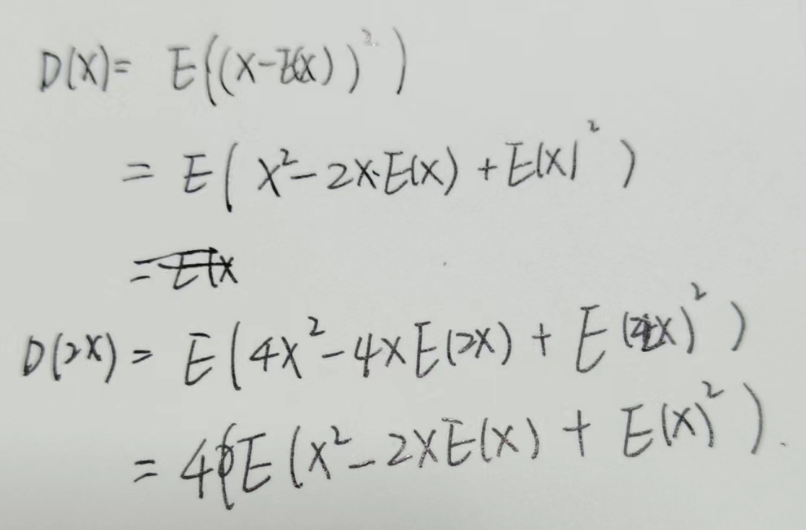 D(X)= E((X-E(X))²)
= E(X²-2X·E(X)+E(X)²)
= E(X
D(2X)= E(4X²-4XE(2X)+E(2X)²)
= 4E(X²-2XE(X)+E(X)²).